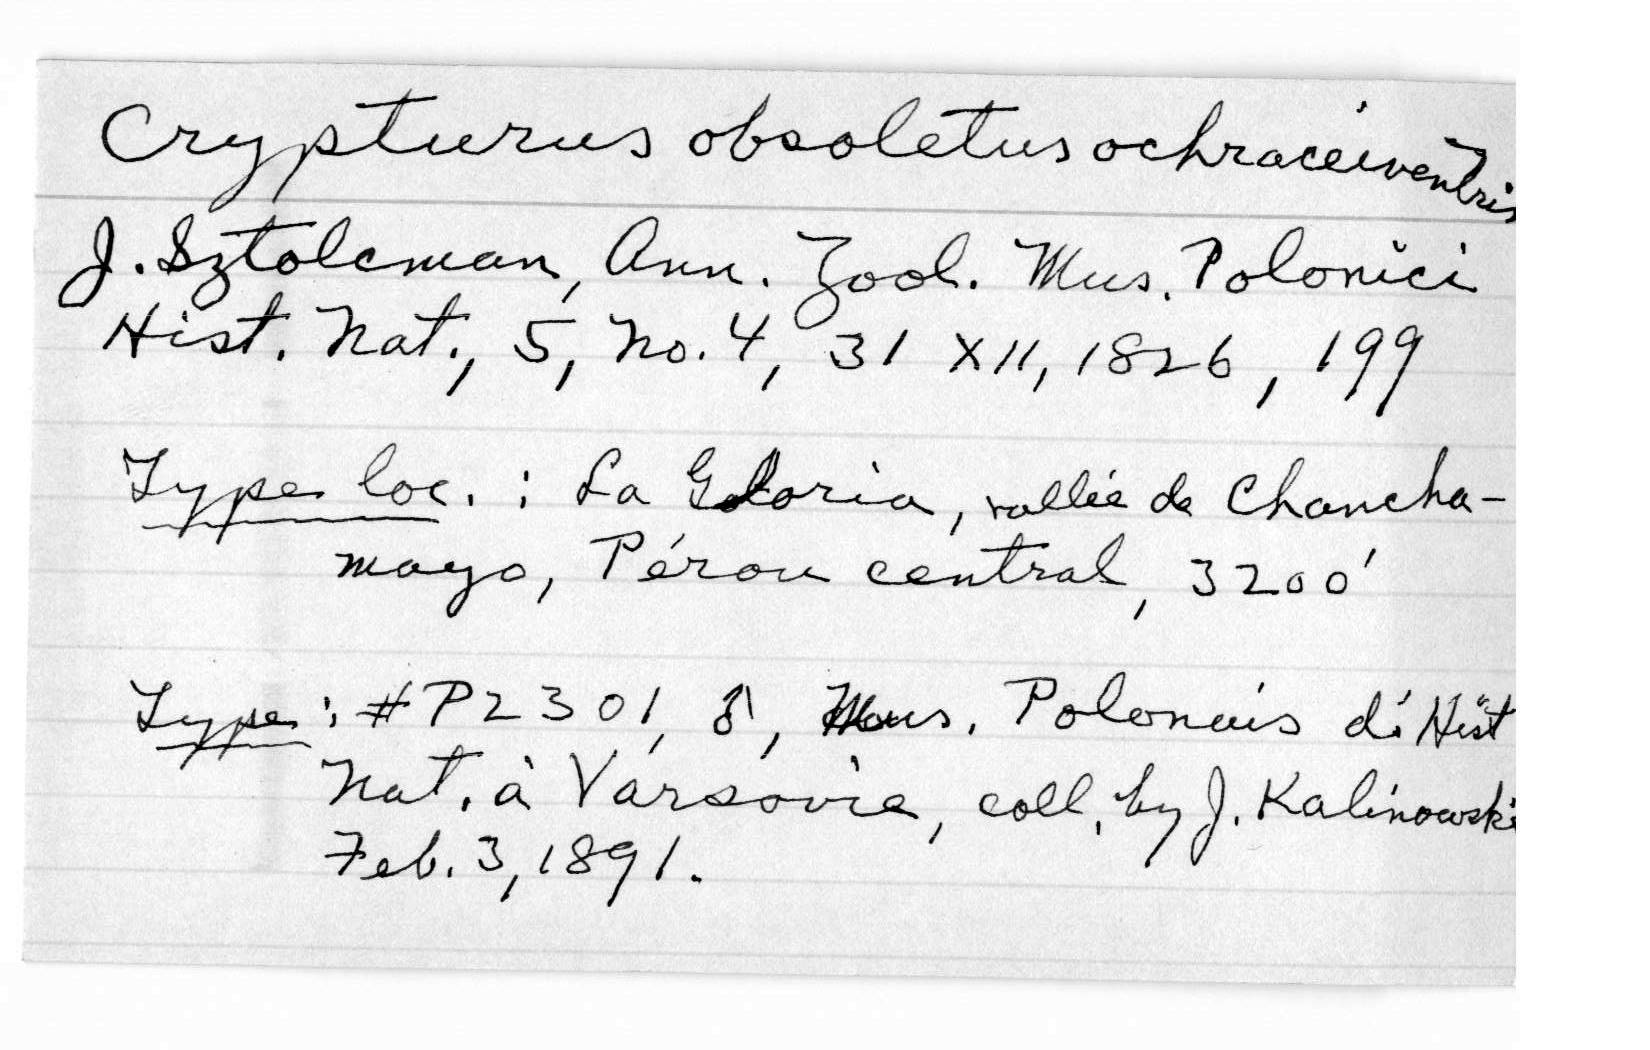 Crypturus obsoletus ochraceiventris
J. Sztolcman, Ann. Zool. Mus. Polonici
Hist. Nat., 5, No. 4, 31 XII, 1826, 199
Type loc. : La Gloria, vallée de Chancha-
mayo, Pérou central, 3200'
Type : #P2301, ♂, Mus. Polonais d'Hist
Nat. à Varsovie, coll. by J. Kalinowski
Feb. 3, 1891.